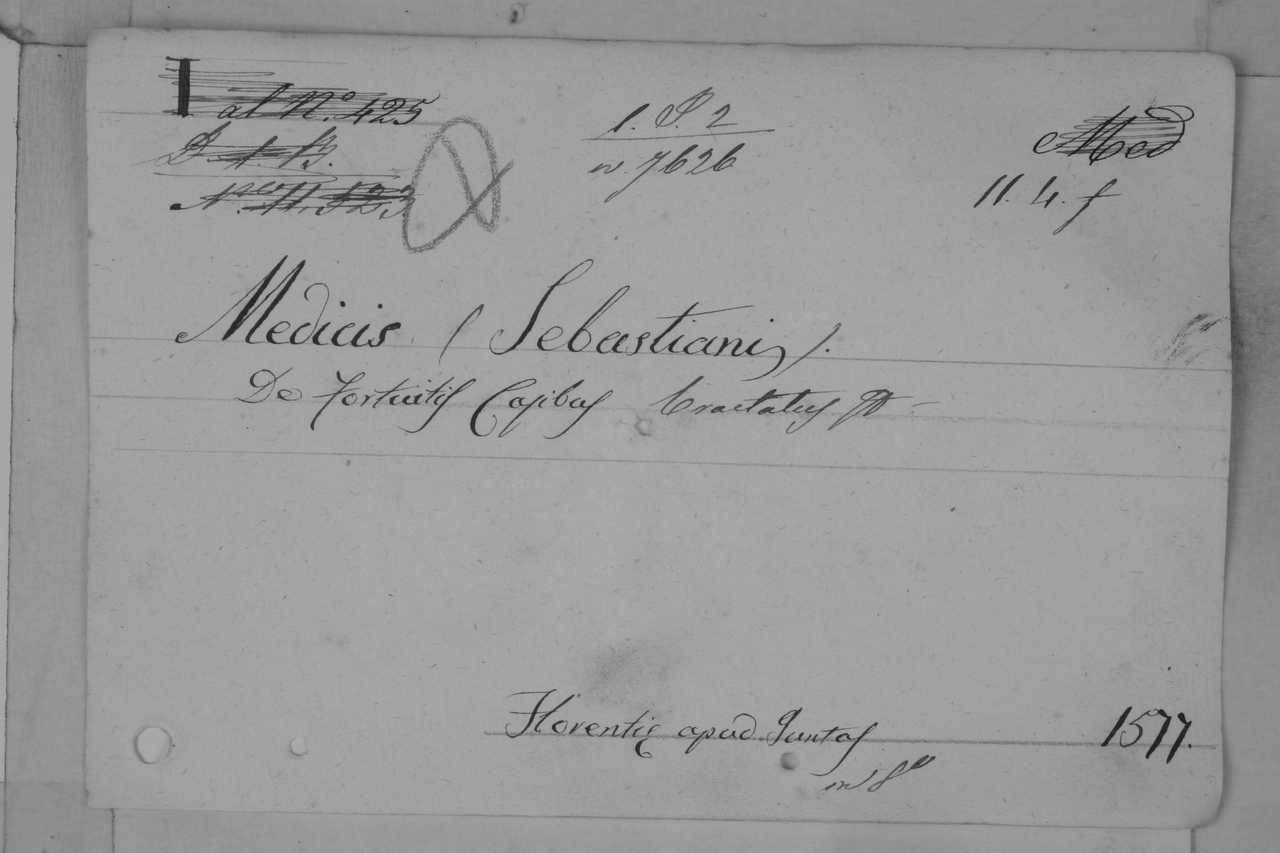 al N.º 425
D. A. B.
1. P. 2
n. 7626
Med
11. 4. f
Medicis (Sebastiani).
De fortuitis Casibus tractatus
Florentię apud Juntas 1577.
in 8º